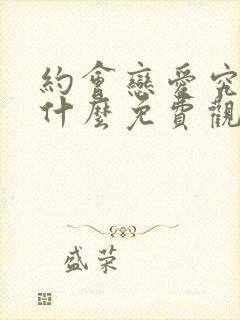 約會戀愛究
什麼免費觀
盛荣